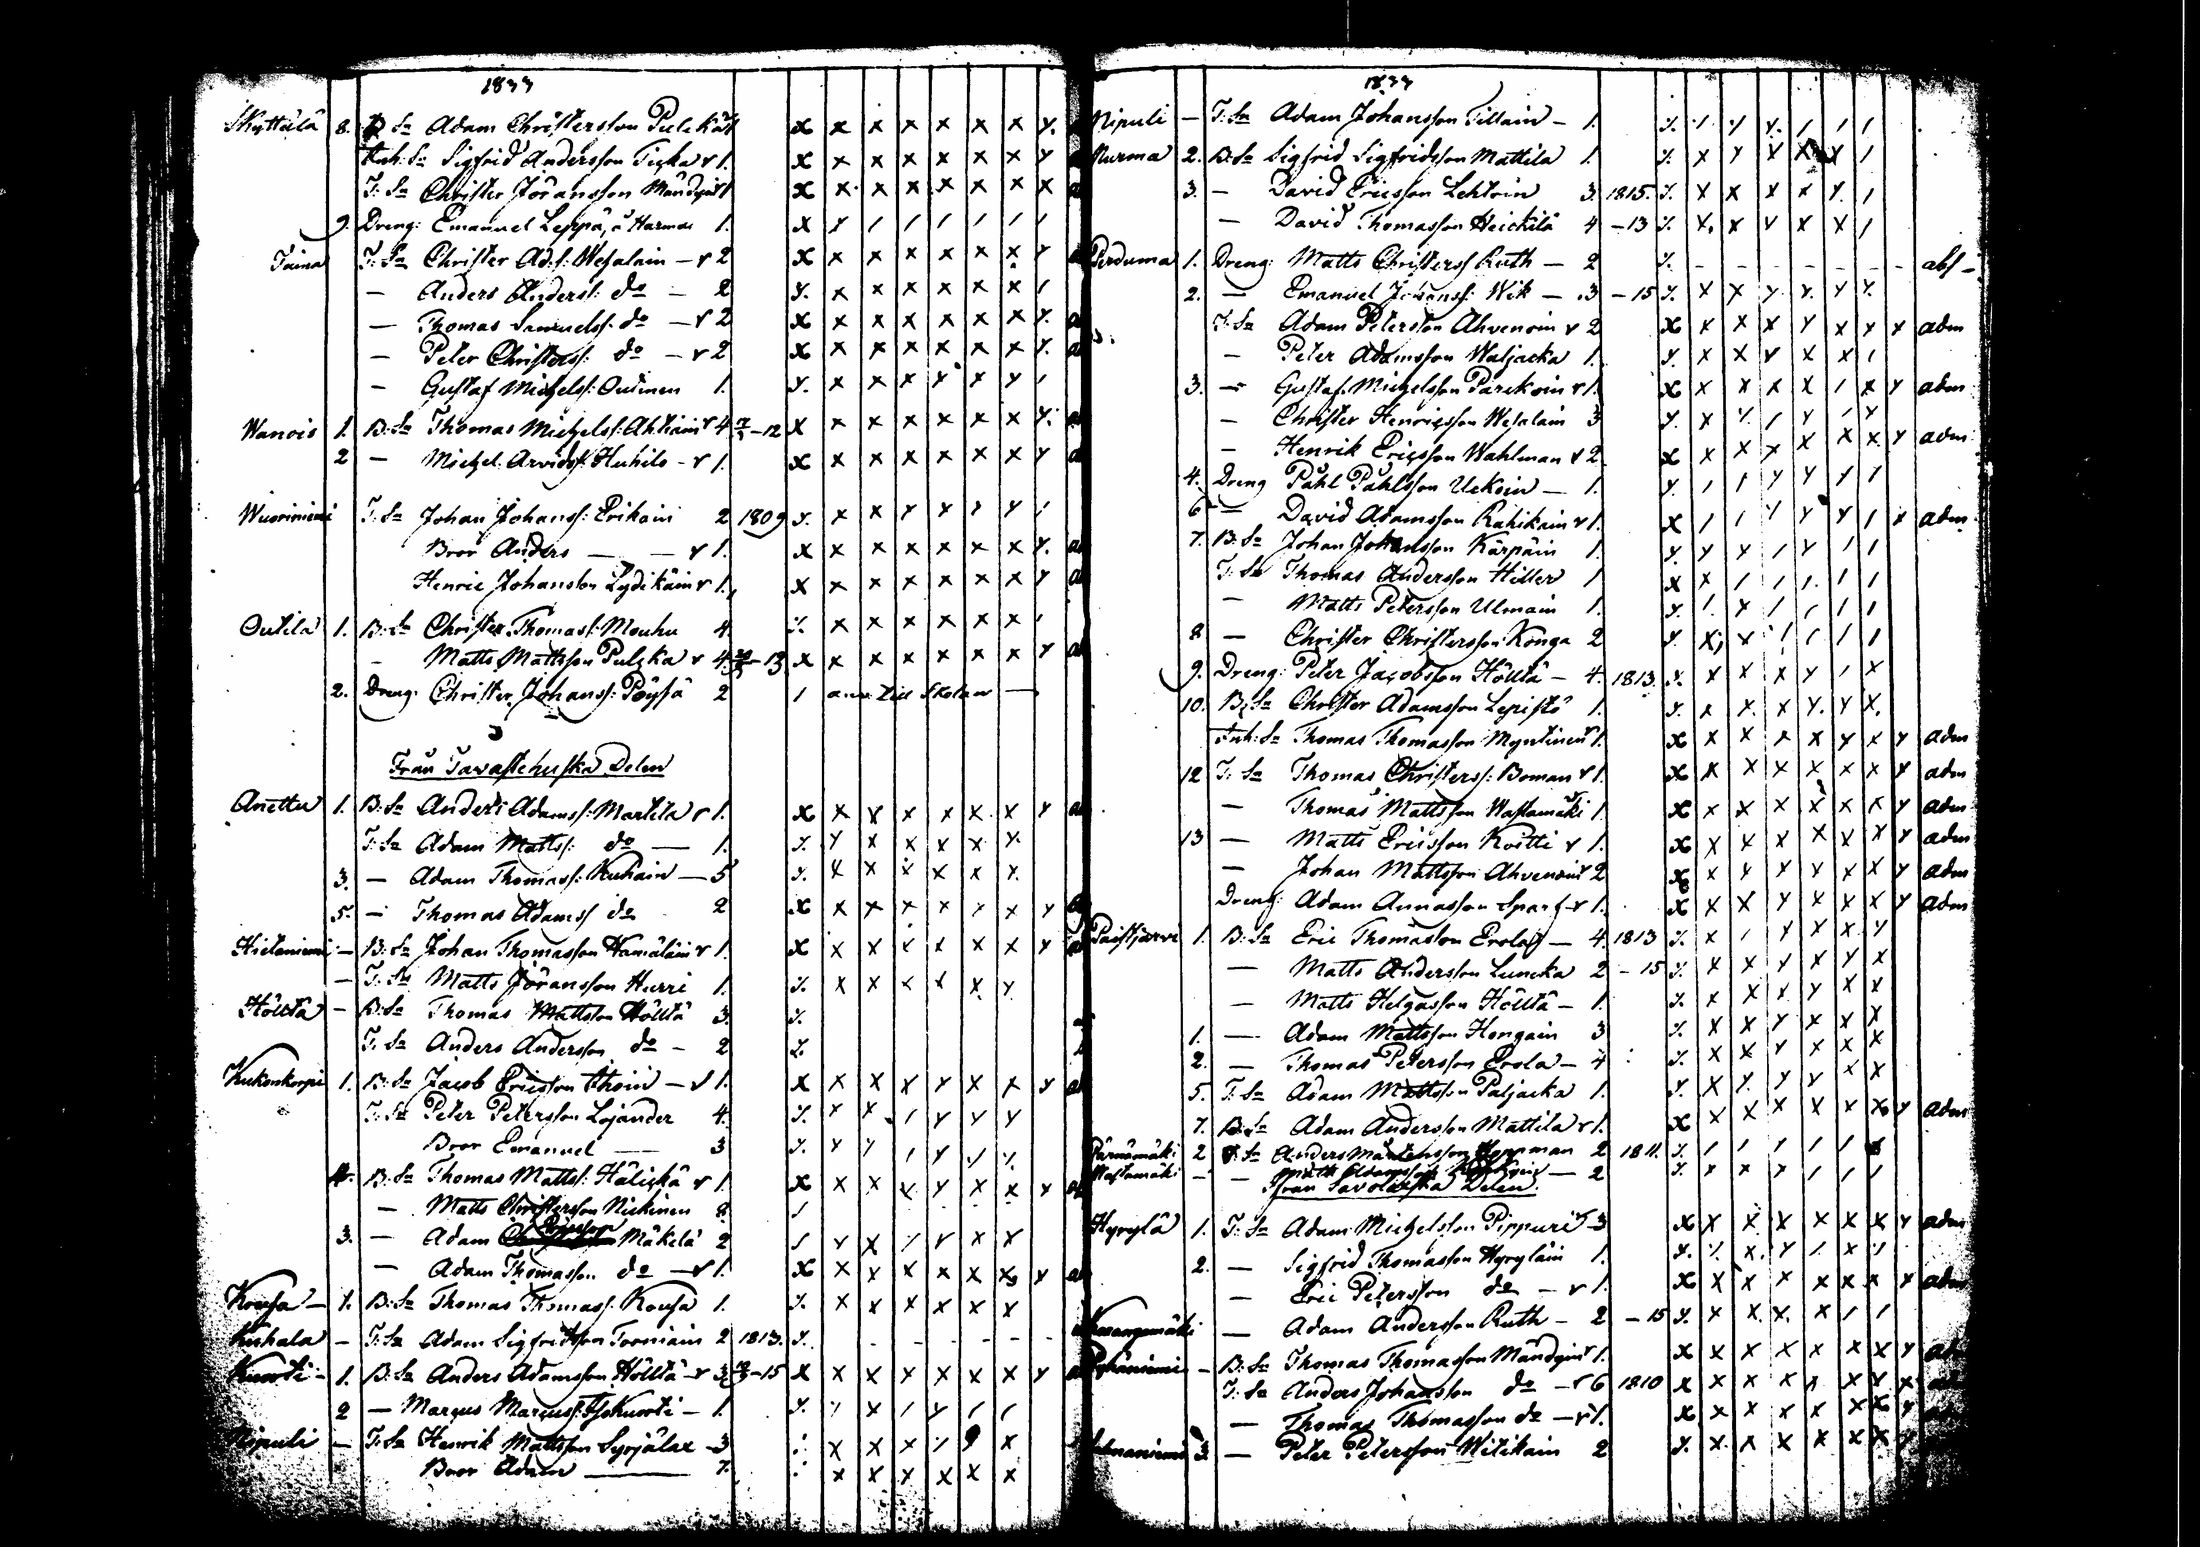 1833
Skyttälä 8. B. Sn Adam Christersson Pulckäs 1
Inh: Sn Sigfrid Andersson Ticka v 1.
T: Sn Christer Jöransson Mändyin v 1
9. Dreng: Emanuel Leppä, å Harmas 1.
T: Sn Christer Ad:s: Wesalain v 2
— Anders Anders: do — 2
— Thomas Samuelss: do — v 2
— Peter Christerss: do — v 2
— Gustaf Michelss: Outinen 1.
Wanois 1. B: Sn Thomas Michelss: Ahtiain v 4 -12
2 — Michel Arvidss: Huhilo - v 1.
Wuoriniemi T: Sn Johan Johanss: Erikain 2 1809
Bror Anders — — v 1.
Henric Johansson Lydikäin v 1.
Outila 1. B: Sn Christer Thomass: Mouhu 4.
- Matts Mattsson Pulcka v 4 - 13
2. Dreng: Christer Johanss: Pöysä 2 1 till Skolan —
Från Tavastehuska Delen
Anettu 1. B: Sn Anders Adamss: Martila v 1.
T: Sn Adam Matss: do — 1.
3. — Adam Thomass: Kuhain — 5
5. — Thomas Adamss do 2
Hietaniemi — B: Sn Johan Thomasson Hämäläin v 1.
— T: Sn Matts Jöransson Hurri 1.
Hölttä — B: Sn Thomas Mattsson Hölttä 3.
T. Sn Anders Andersson do - 2
Kukonkorpi 1. B: Sn Jacob Ericsson — v 1.
T: Sn Peter Petersson Lojander 4.
Bror Emanuel — 3
B: Sn Thomas Matts: Hälickä v 1.
— Matts Christersson Niskinen 2
3. — Adam Ericsson Mäkelä 2
— Adam Thomasson do — v 1.
Kousa — 1. B: Sn Thomas Thomass: Kousa 1.
Kuhala — T: Sn Adam Sigfridsson Torniain 2 1813.
Kuorti - 1. B: Sn Anders Adamsson Hölttä v 3 - 15
2 — Marcus Marcuss: Isokuorti — 1.
Nipuli — T: Sn Henrik Mattsson Syrjälae 3
Bror Adam — 7.
1833
Nipuli — T: Sn Adam Johansson Tillain — 1.
Nurma 2. B: Sn Sigfrid Sigfridsson Mattila 1.
3. — David Ericsson Lehtoin 3. 1815.
— David Thomasson Heickilä 4 - 13
Perduma 1. Dreng: Matts Christerss Ruth — 2 abs -
2. — Emanuel Johanss: Wik — 3 - 15
T: Sn Adam Petersson Ahvenoin v 2 adm
— Peter Adamsson Waljacka 1.
3. — Gustaf Michelsson Parikoin v 1. adm
— Christer Henricsson Wesalain 3
— Henrik Ericsson Wahlman v 2 adm
4. Dreng Påhl Påhlsson Uckoin — 1.
6 — David Adamsson Rahikain v 1. adm
7. B: Sn Johan Johansson Kärpäin 1.
T: Sn Thomas Andersson Hiller 1
— Matts Petersson Ulmain 1.
8 — Christer Christersson Konga 2
9. Dreng: Peter Jacobsson Hölttä — 4. 1813.
10. B: Sn Christer Adamsson Lepistö 1.
Inh: Sn Thomas Thomasson Myntinen v 1. adm
12 T: Sn Thomas Christerss: Boman v 1. adm
— Thomas Mattsson Wastamäki 1 adm
13 — Matts Ericsson Kostti v 1. adm
— Johan Mattsson Ahvenoin v 2 adm
Dreng: Adam Annasson Sparf v 1. adm
Paistjärvi 1. B: Sn Eric Thomasson Erola — 4. 1813
— Matts Andersson Luncka 2 - 15
— Matts Helgasson Hölttä — 1.
1. — Adam Mattsson Hongain 3
2. — Thomas Petersson Erola — 4
5. T: Sn Adam Mattsson Paljacka 1.
7. B: Sn Adam Andersson Mattila v 1. adm
Pärnämäki 2 T: Sn Anders Mårtensson Hopman 2 1811.
Wastamäki - — Matts Adamsson — 2
Ifrån Savolaxska Delen.
Hyrylä 1. T: Sn Adam Michelsson Pippuri v 3 adm
2. — Sigfrid Thomasson Hyryläin 1.
— Eric Petersson do — v 1. adm
— Adam Andersson Ruth — 2 - 15
— B: Sn Thomas Thomasson Mändyin v 1. adm
T: Sn Anders Johansson do — v 6 1810
— Thomas Thomasson do — v 1.
3 — Peter Petersson Witikain 2